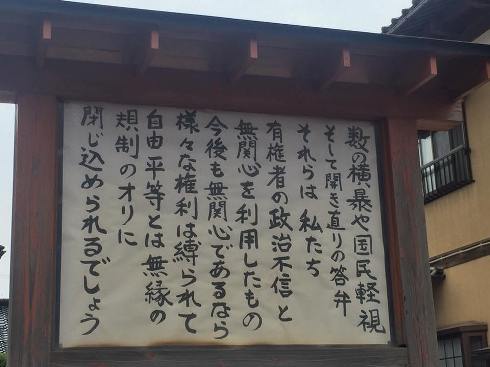 数の横暴や国民軽視
そして開き直りの答弁
それらは私たち
有権者の政治不信と
無関心を利用したもの
今後も無関心であるなら
様々な権利は縛られて
自由平等とは無縁の
規制のオリに
閉じ込められるでしょう